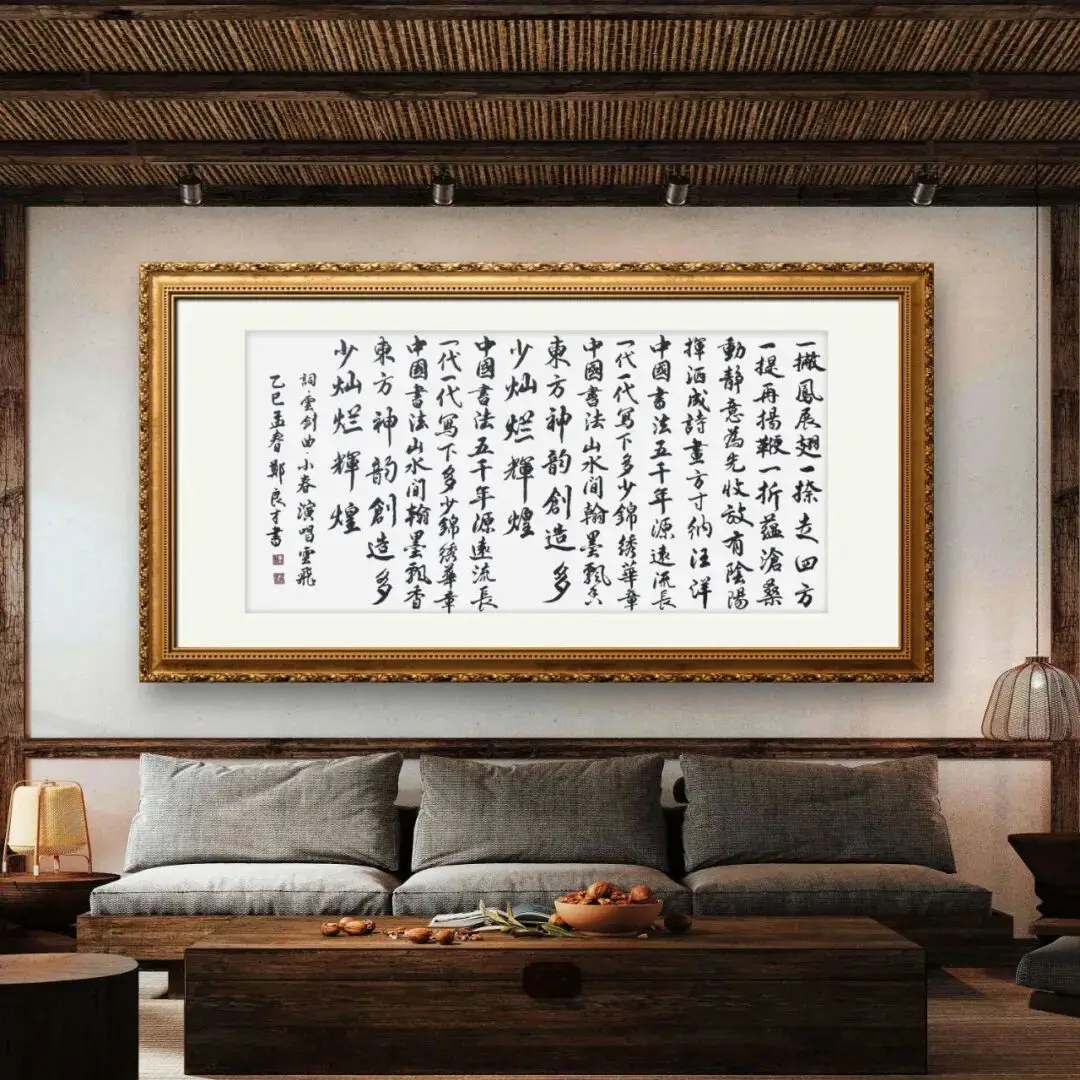 一撇鳳展翅一捺走四方
一提再揚鞭一折蘊滄桑
動靜意為先收放有陰陽
揮洒成詩畫方寸納汪洋
中國書法五千年源遠流長
一代一代写下多少錦綉華章
中國書法山水间翰墨飄香
東方神韵創造多
少灿烂輝煌
中國書法五千年源遠流長
一代一代写下多少錦綉華章
中國書法山水间翰墨飄香
東方神韵創造多
少灿烂輝煌
詞雲剑曲·小春演唱雲飛
乙巳孟春鄭良才書